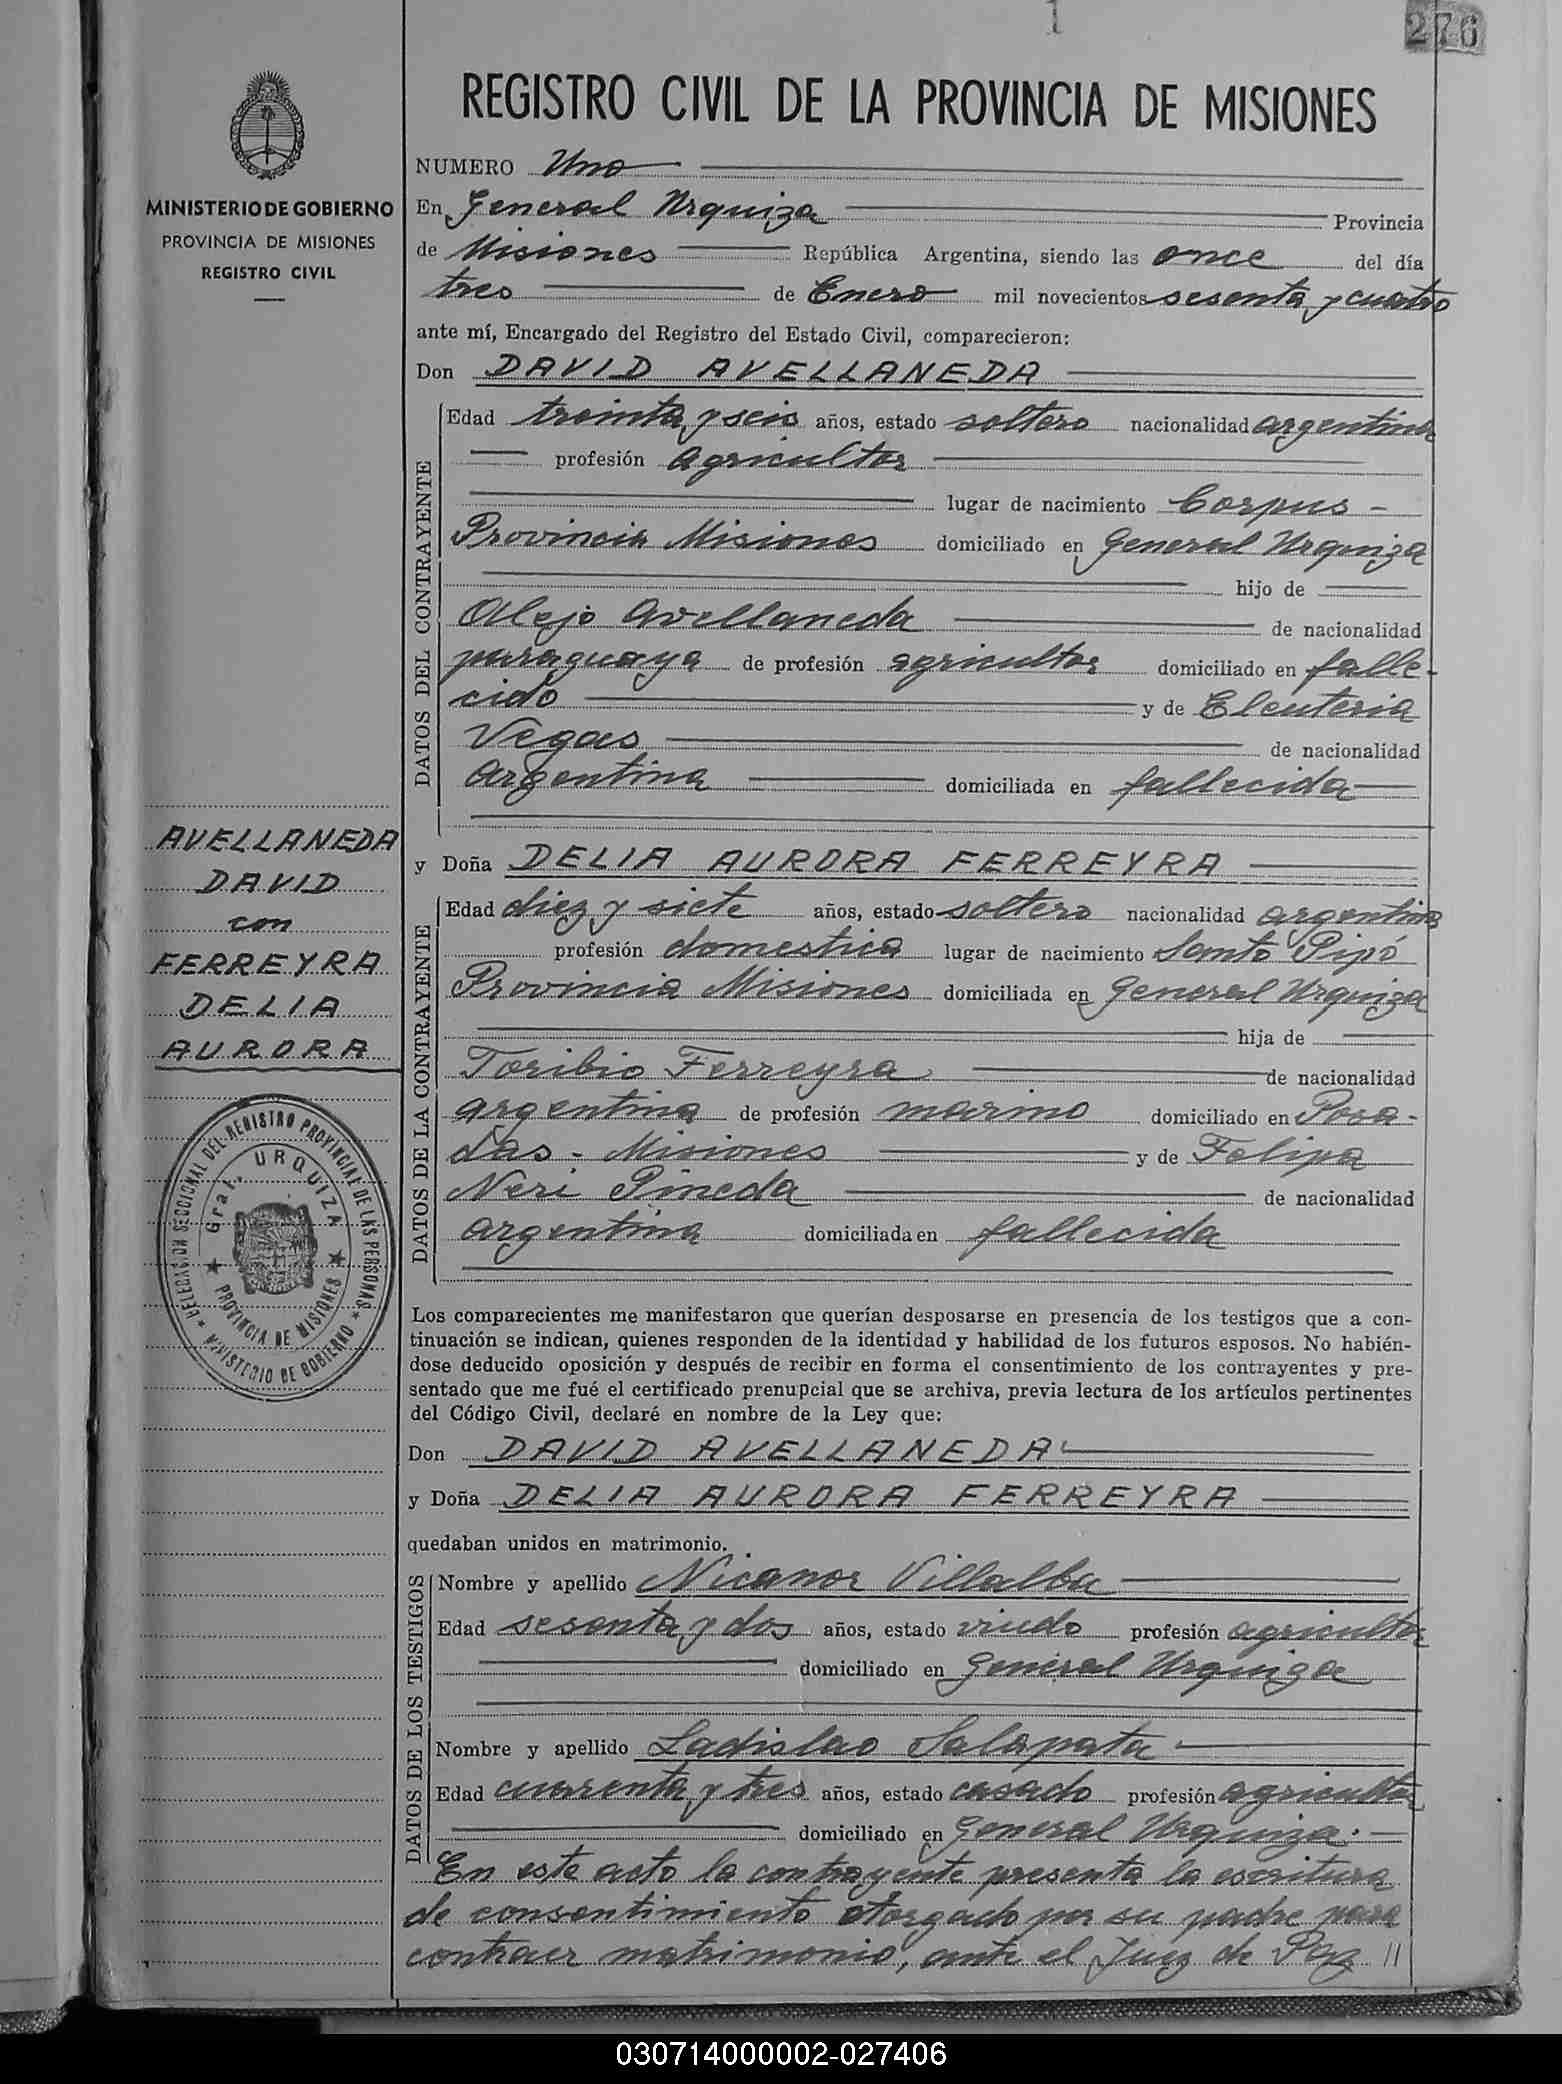 1
276
REGISTRO CIVIL DE LA PROVINCIA DE MISIONES
MINISTERIO DE GOBIERNO
PROVINCIA DE MISIONES
REGISTRO CIVIL
NUMERO Uno
En General Urquiza Provincia
de Misiones República Argentina, siendo las once del día
tres de Enero mil novecientos sesenta y cuatro
ante mí, Encargado del Registro del Estado Civil, comparecieron:
Don DAVID AVELLANEDA
DATOS DEL CONTRAYENTE
Edad treinta y seis años, estado soltero nacionalidad argentina
profesión agricultor
lugar de nacimiento Corpus -
Provincia Misiones domiciliado en General Urquiza
hijo de
Alejo Avellaneda de nacionalidad
paraguaya de profesión agricultor domiciliado en falle-
cido y de Eleuteria
Vegas de nacionalidad
argentina domiciliada en fallecida
AVELLANEDA
DAVID
con
FERREYRA
DELIA
AURORA
y Doña DELIA AURORA FERREYRA
DATOS DE LA CONTRAYENTE
Edad diez y siete años, estado soltera nacionalidad argentina
profesión domestica lugar de nacimiento Santo Pipó
Provincia Misiones domiciliada en General Urquiza
hija de
Toribio Ferreyra de nacionalidad
argentina de profesión marino domiciliado en Posa-
das - Misiones y de Felipa
Neri Pineda de nacionalidad
argentina domiciliada en fallecida
DELEGACION SECCIONAL DEL REGISTRO PROVINCIAL DE LAS PERSONAS
MINISTERIO DE GOBIERNO
Gral. URQUIZA
PROVINCIA DE MISIONES
Los comparecientes me manifestaron que querían desposarse en presencia de los testigos que a con-
tinuación se indican, quienes responden de la identidad y habilidad de los futuros esposos. No habién-
dose deducido oposición y después de recibir en forma el consentimiento de los contrayentes y pre-
sentado que me fué el certificado prenupcial que se archiva, previa lectura de los artículos pertinentes
del Código Civil, declaré en nombre de la Ley que:
Don DAVID AVELLANEDA
y Doña DELIA AURORA FERREYRA
quedaban unidos en matrimonio.
DATOS DE LOS TESTIGOS
Nombre y apellido Nicanor Villalba
Edad sesenta y dos años, estado viudo profesión agricultor
domiciliado en General Urquiza
Nombre y apellido Ladislao Salapata
Edad cuarenta y tres años, estado casado profesión agricultor
domiciliado en General Urquiza. -
En este acto la contrayente presenta la escritura
de consentimiento otorgado por su padre para
contraer matrimonio, ante el Juez de Paz //
030714000002-027406